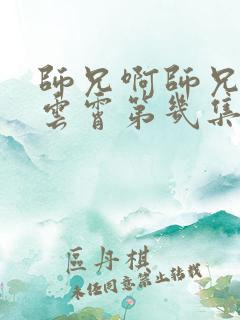 師兄啊師兄
雲霄第幾集
區丹棋
未經同意禁止轉載